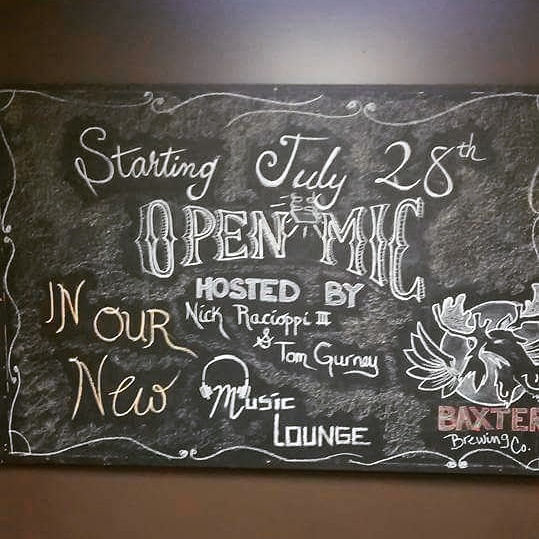 Starting July 28th
OPEN MIC
HOSTED BY
Nick Racioppi III
& Tom Gurney
IN OUR
New
Music
LOUNGE
BAXTER
Brewing Co.